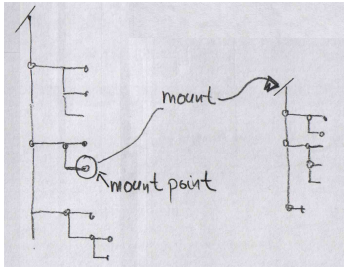 /
mount
/
mount point